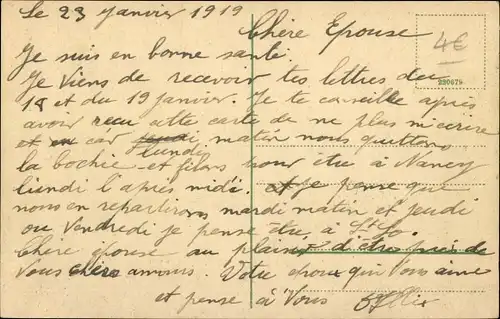 Le 23 Janvier 1919
Chère Epouse
4€
220679
Je suis en bonne santé.
Je Viens de recevoir tes lettres du
18 et du 19 janvier. Je te conseille après
avoir recu cette carte de ne plus m'écrire
car lundi matin nous quittons
la bochie et filons pour être à Nancy
lundi l'après midi. et je pense que
nous en repartirons mardi matin et jeudi
ou Vendredi je pense être à St Lo.
Chère épouse au plaisir d'être près de
Vous chers amours. Votre époux qui Vous aime
et pense à Vous